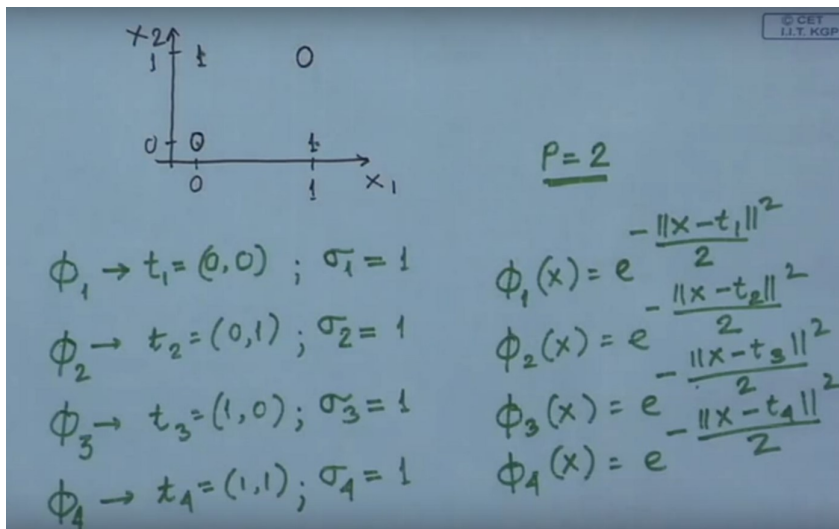 © CET
I.I.T. KGP
x2
1 1 0
0 0 1
0 1 x1
P=2
ϕ1 → t1=(0,0) ; σ1=1
ϕ2 → t2=(0,1) ; σ2=1
ϕ3 → t3=(1,0) ; σ3=1
ϕ4 → t4=(1,1) ; σ4=1
ϕ1(x) = e^(-||x-t1||²/2)
ϕ2(x) = e^(-||x-t2||²/2)
ϕ3(x) = e^(-||x-t3||²/2)
ϕ4(x) = e^(-||x-t4||²/2)